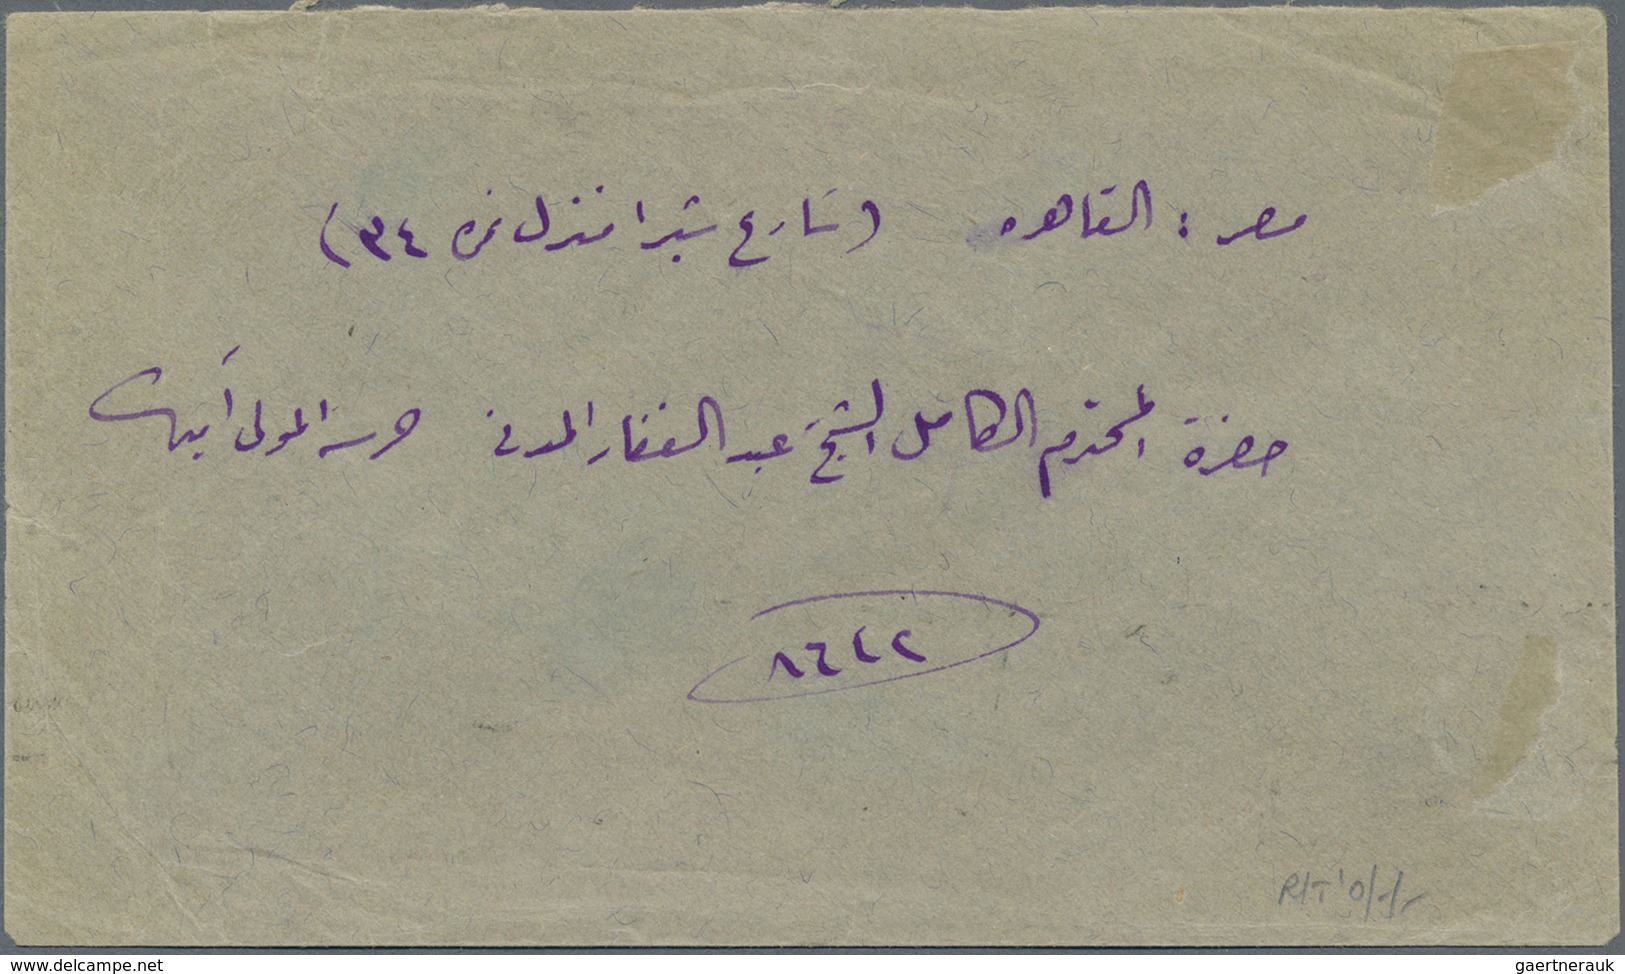 مصر : القاهره (شارع شبرا منزل نمره ٣٤)
حضرة المحترم الكامل الشيخ عبد الغفار المدني حرسه المولى آمين
٨٦٤٢
www.delcampe.net
gaertnerauk